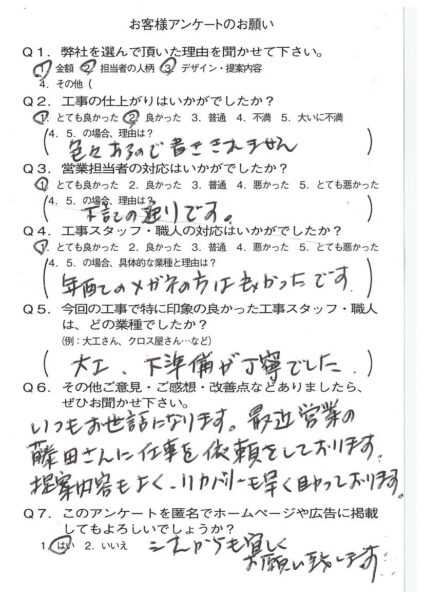 お客様アンケートのお願い
Q1．弊社を選んで頂いた理由を聞かせて下さい。
1．金額 2．担当者の人柄 3．デザイン・提案内容
4．その他（
Q2．工事の仕上がりはいかがでしたか？
1．とても良かった 2．良かった 3．普通 4．不満 5．大いに不満
4．5．の場合、理由は？
色々あるので書ききれません
Q3．営業担当者の対応はいかがでしたか？
1．とても良かった 2．良かった 3．普通 4．悪かった 5．とても悪かった
4．5．の場合、理由は？
下記の通りです。
Q4．工事スタッフ・職人の対応はいかがでしたか？
1．とても良かった 2．良かった 3．普通 4．悪かった 5．とても悪かった
4．5．の場合、具体的な業種と理由は？
年配のメガネの方は良かったです
Q5．今回の工事で特に印象の良かった工事スタッフ・職人
は、どの業種でしたか？
（例：大工さん、クロス屋さん…など）
大工、下準備が丁寧でした．
Q6．その他ご意見・ご感想・改善点などありましたら、
ぜひお聞かせ下さい。
いつもお世話になります。最近営業の
藤田さんに仕事を依頼をしております．
提案内容もよく、リカバリーも早く助っております。
Q7．このアンケートを匿名でホームページや広告に掲載
してもよろしいでしょうか？
1．はい 2．いいえ これからも宜しく
お願い致します